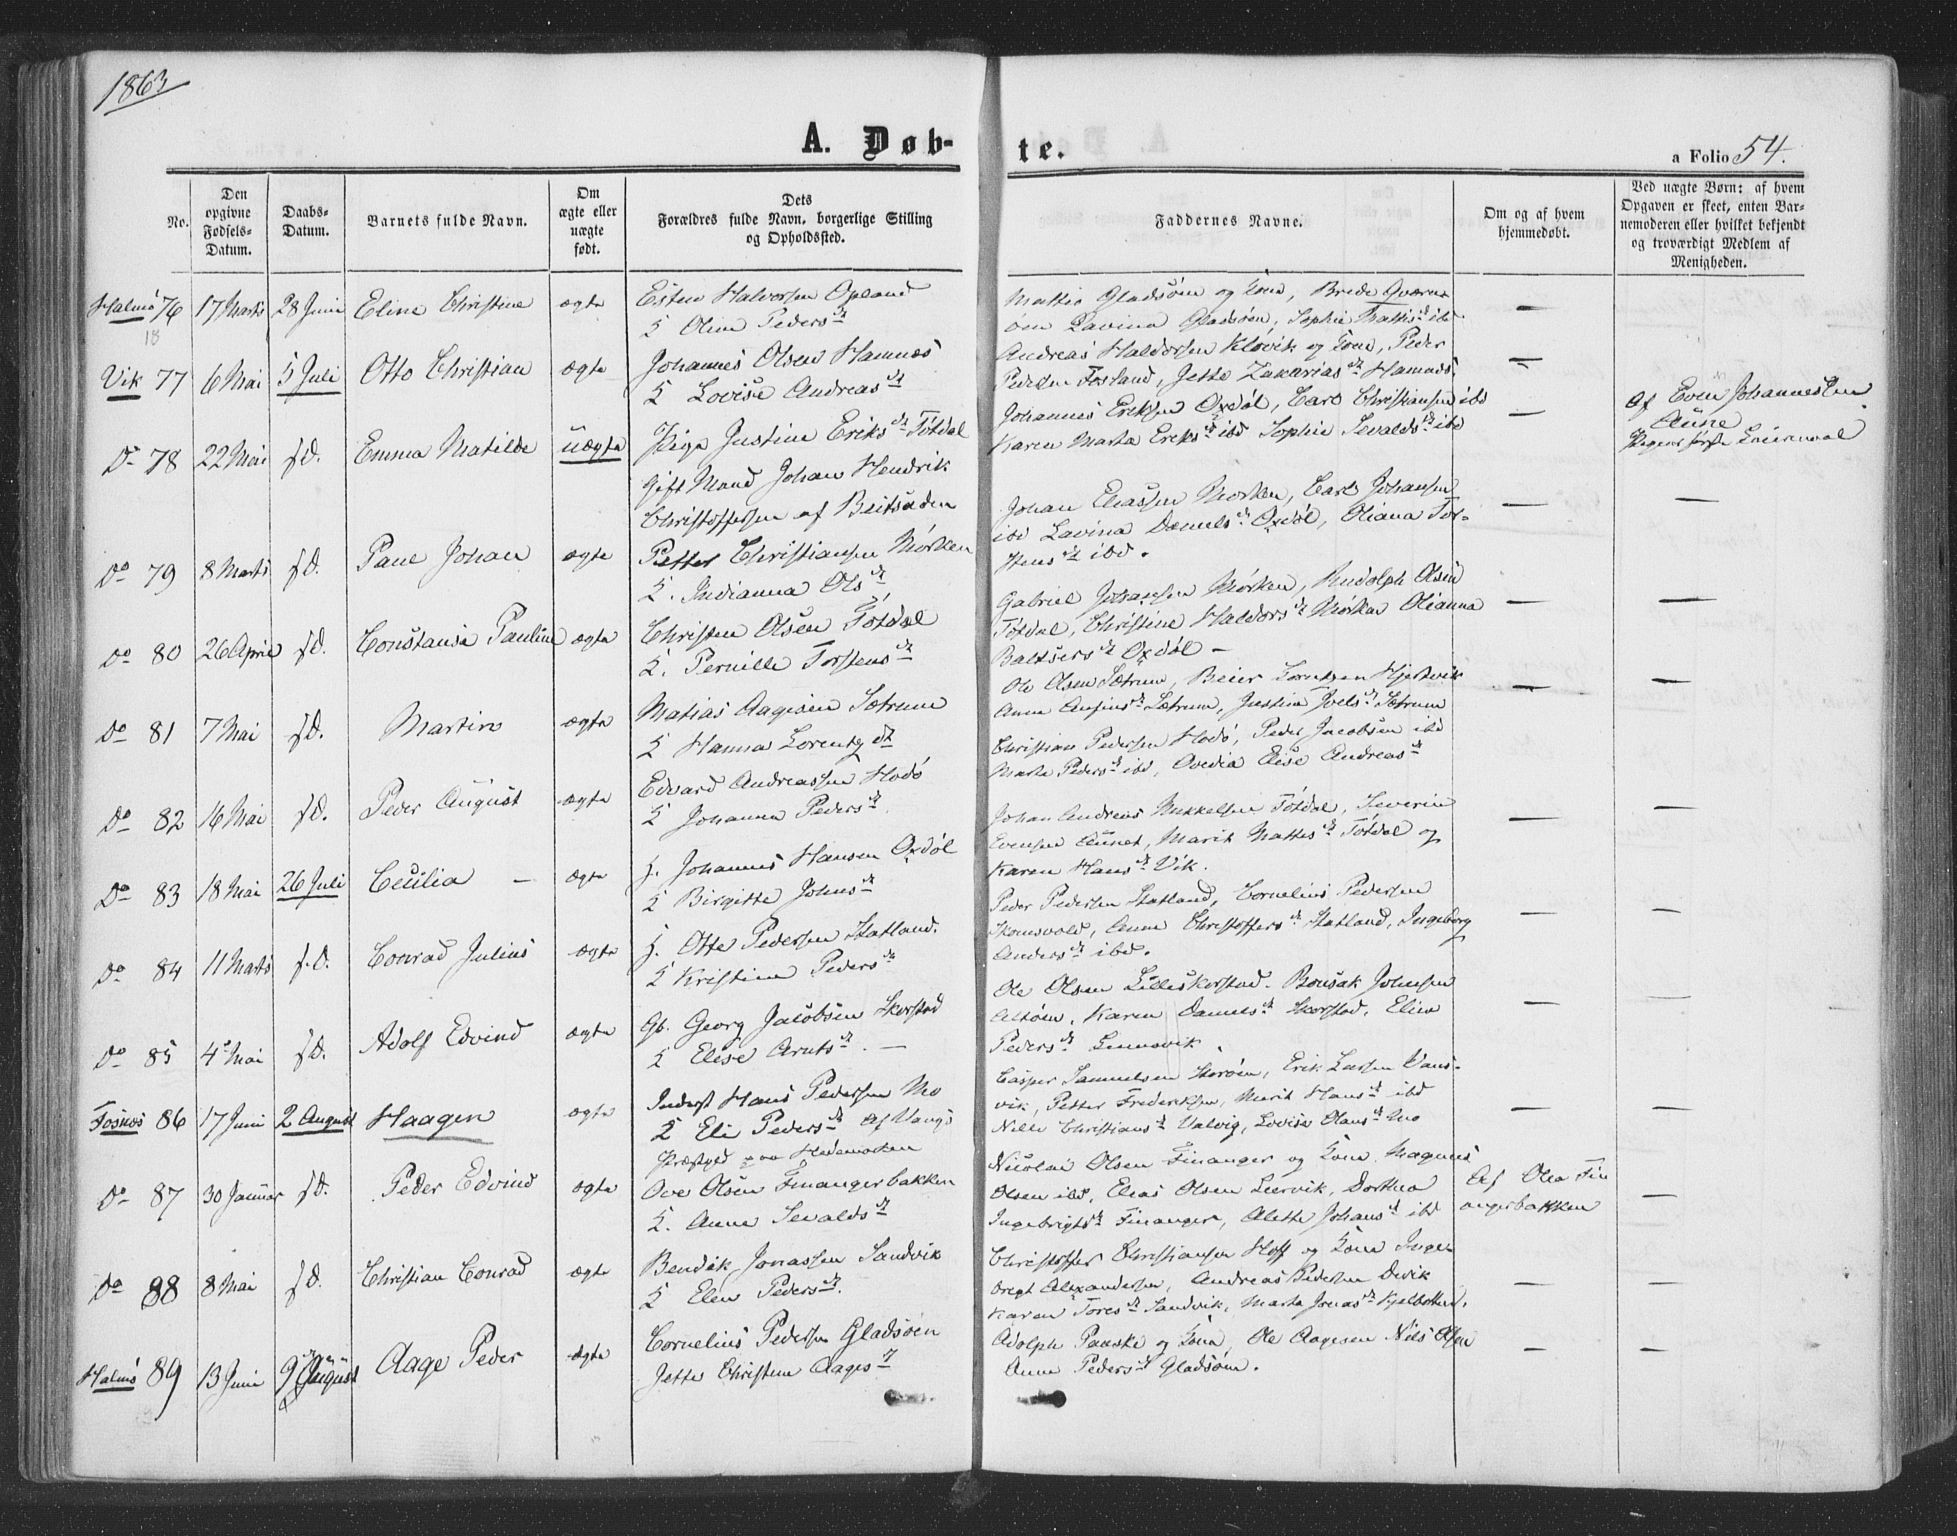 1863
A. Døb-
te.
a Folio 54.
No.
Den opgivne Fødsels-Datum.
Daabs-Datum.
Barnets fulde Navn.
Om ægte eller uægte født.
Dets Forældres fulde Navn, borgerlige Stilling og Opholdssted.
Faddernes Navne.
Om og af hvem hjemmedøbt.
Ved uægte Børn: af hvem Opgaven er skeet, enten Barnemoderen eller hvilket bekjendt og troværdigt Medlem af Menigheden.
Halmö 76 17 Marts 28 Juni Eline Christine ægte Esten Halvorsen Opland
Ƨ Oline Peders dt
Mattis Gladsöm og Kone, Brede Qværn-
öen Lavina Gladsöen, Sophie Mattis dt ibd —
Vik 77 6 Mai 5 Juli Otto Christian ægte Johannes Olsen Hamnæs
Ƨ Lovise Andreas dt
Andreas Haldorsen Klövik og Kone, Peder
Pedersen Fosland, Jette Zakarias dt Hamnæs —
Do 78 22 Mai s.D. Emma Matilde uægte Pige Justine Eriks dt Tötdal
Gift Mand Johan Hendrik
Christoffersen af Beitstaden
Johannes Eriksen Oxdöl, Carl Christiansen ibd
Karen Marta Eriks dt ibd Sophie Sevalds dt ibd —
Af Even Johannessen
Aune
Do 79 8 Marts s.D. Paul Johan ægte Petter Christiansen Mörken
Ƨ. Indianna Ols dt
Johan Eliassen Morken, Carl Johansen
ibd Lavina Daniels dt Oxdöl, Oliana Tor-
stens dt ibd. — —
Do 80 26 April s.D. Constanse Pauline ægte Christen Olsen Tötdal
Ƨ. Pernille Torstens dt
Gabriel Johansen Mörken, Rudolph Olsen
Tötdal, Christine Haldors dt Mörken Olianna
Baltsers dt Oxdöl — — —
Do 81 7 Mai s.D. Martin ægte Matias Aagesen Sætrum
Ƨ Hanna Lorentz dt
Ole Olsen Sætrum, Beier Lorentzen Hjertvik
Anne dt Sætrum, Justina Joels dt Sætrum — —
Do 82 16 Mai s.D. Peder August ægte Edvard Andreassen Hodö
Ƨ Johanna Peders dt
Christian Pedersen Hodö, Peder Jacobsen ibd
Marta Peders dt ibd, Ovedia Elise Andreas dt
Do 83 18 Mai 26 Juli Cecilia — ægte J. Johannes Hansen Oxdöl
Ƨ Birgitte Johns dt
Johan Andreas Mikkelsen Tötdal, Severin
Evensen Aunet, Marit Mattis dt Tötdal og
Karen Hans dt Vik. — —
Do 84 11 Marts s.D. Conrad Julius ægte J. Otte Pedersen Statland.
Ƨ Kristine Peders dt
Peder Pedersen Statland, Cornelius Pedersen
Skomsvold, Anne Christoffers dt Statland, Ingeborg
Anders dt ibd. — —
Do 85 4de Mai s.D. Adolf Edvind ægte Gb. Georg Jacobsen Skorstad
Ƨ Elise Arnts dt —
Ole Olsen Lilleskorstad. Bonsak Johnsen
Altöen, Karen Daniels dt Skorstad, Elen
Peders dt Lennavik — —
Fosnæs 86 17 Juni 2 August Haagen ægte Inderst Hans Pedersen Mo
Ƨ Eli Peders dt Af Vangs
Præstgjeld paa Hedemarken
Casper Samuelsen Storöen, Erik Larsen Vans-
vik, Petter Frederiksen, Marit Hans dt ibd
Nille Christians dt Valvig, Lovise Olaus dt Mo — —
Do 87 30 Januar s.D. Peder Edvind ægte Ove Olsen Finangerbakken
Ƨ. Anne Sevalds dt
Nicolai Olsen Finanger og Kone Magnus
Olsen ibd, Elias Olsen Leervik, Dorthea
Ingebrigts dt Finanger, Alette Johans dt ibd
Af Olea Fin
angerbakken —
Do 88 8 Mai s.D. Christian Conrad ægte Bendik Jonassen Sandvik
Ƨ Elen Peders dt.
Christoffer Christiansen Hoff og Kone Inge-
bregt Alexandersen, Andreas Pedersen Devik
Karen Tores dt Sandvik, Marta Jonas dt Kjelbotten. — —
Halmö 89 13 Juni 9 August Aage Peder ægte Cornelius Pedersen Gladsöen
Jette Christine Aages dt
Adolph Paaske og Kone, Ole Aagesen Nils Olsen
Anne Peders dt Gladsöm. — —